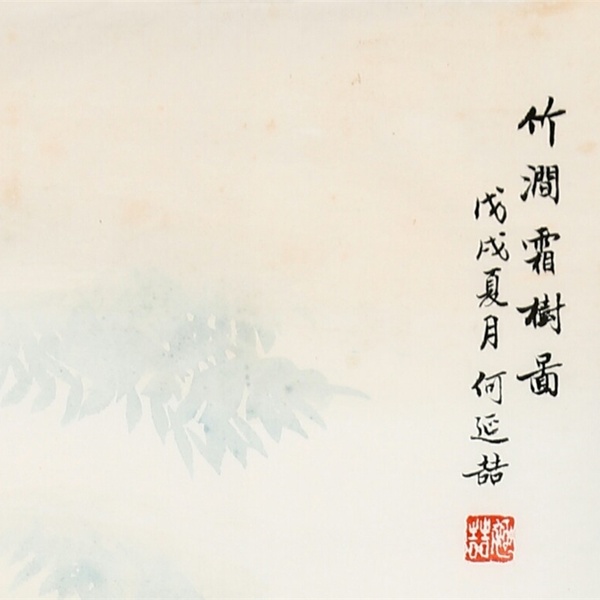 竹澗霜樹啚
戊戌夏月何延喆
延喆